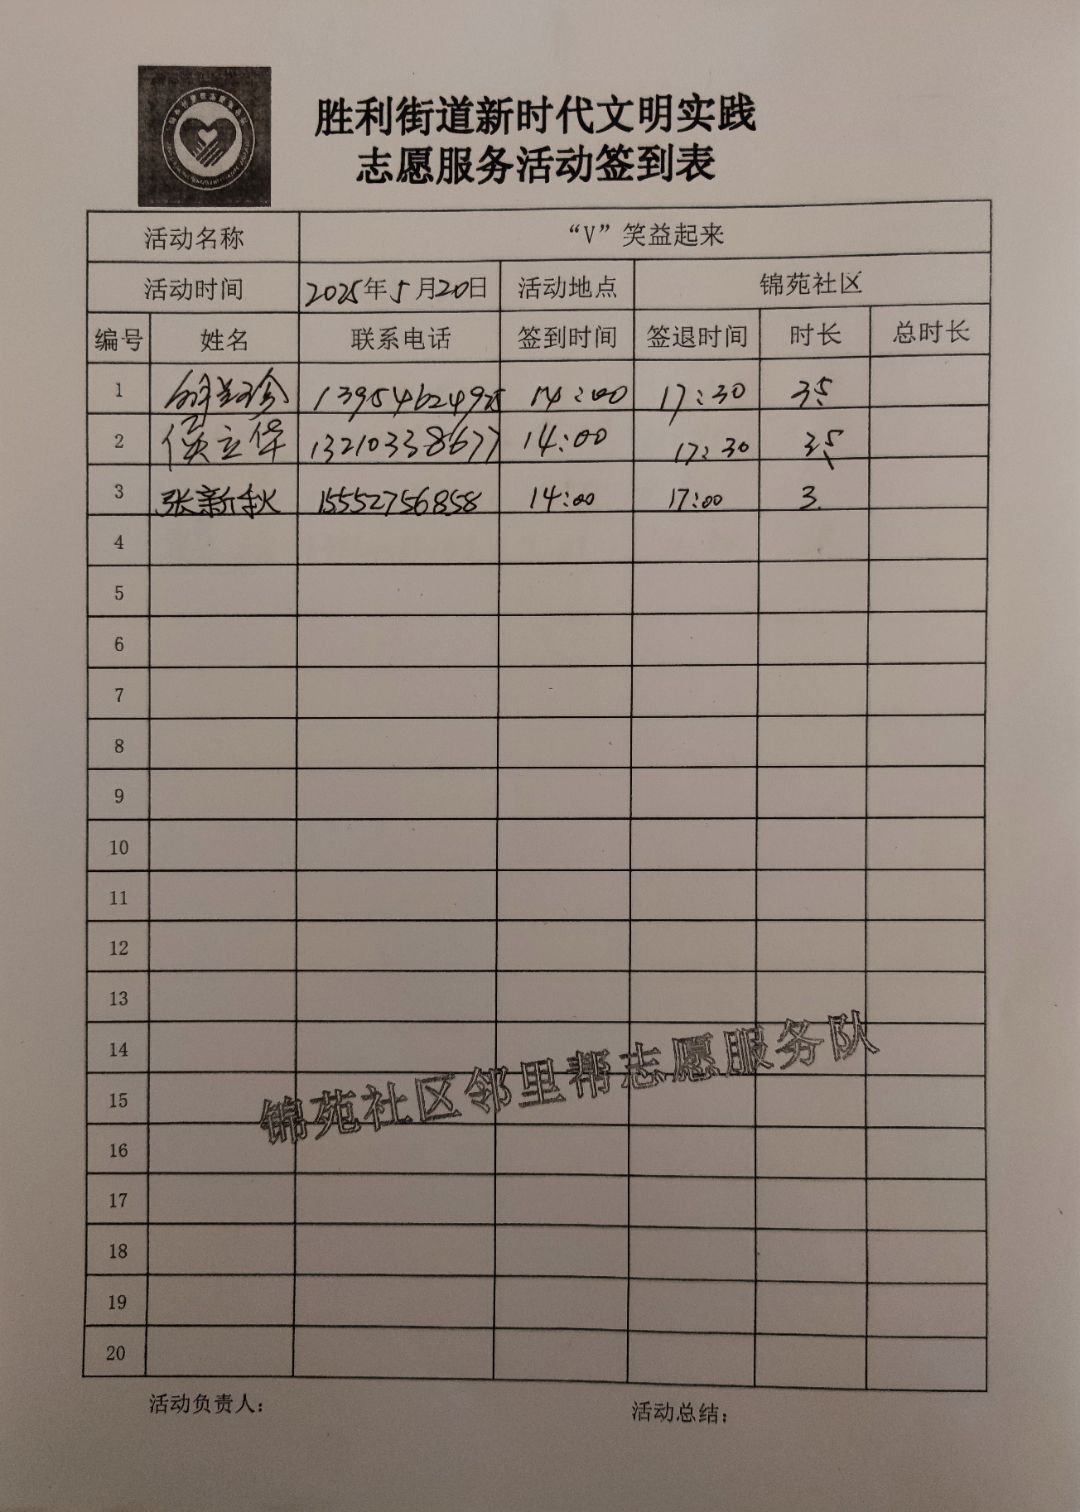 胜利街道新时代文明实践
志愿服务活动签到表
活动名称 “V”笑益起来
活动时间 2025年5月20日 活动地点 锦苑社区
编号 姓名 联系电话 签到时间 签退时间 时长 总时长
1 14:00 17:30 3.5
2 侯立华 13210338677 14:00 17:30 3.5
3 张新秋 15552756858 14:00 17:00 3
4
5
6
7
8
9
10
11
12
13
14
15
16
17
18
19
20
锦苑社区邻里帮志愿服务队
活动负责人: 活动总结: